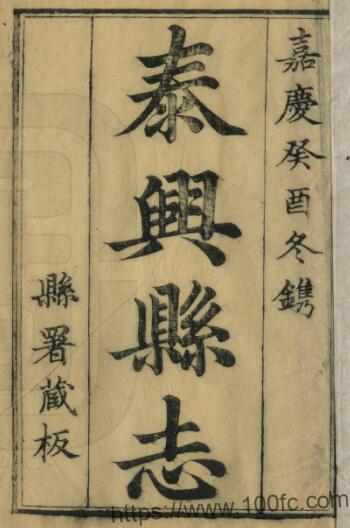 嘉慶癸酉冬鐫
泰興縣志
縣署蔵板
https://www.100fc.com